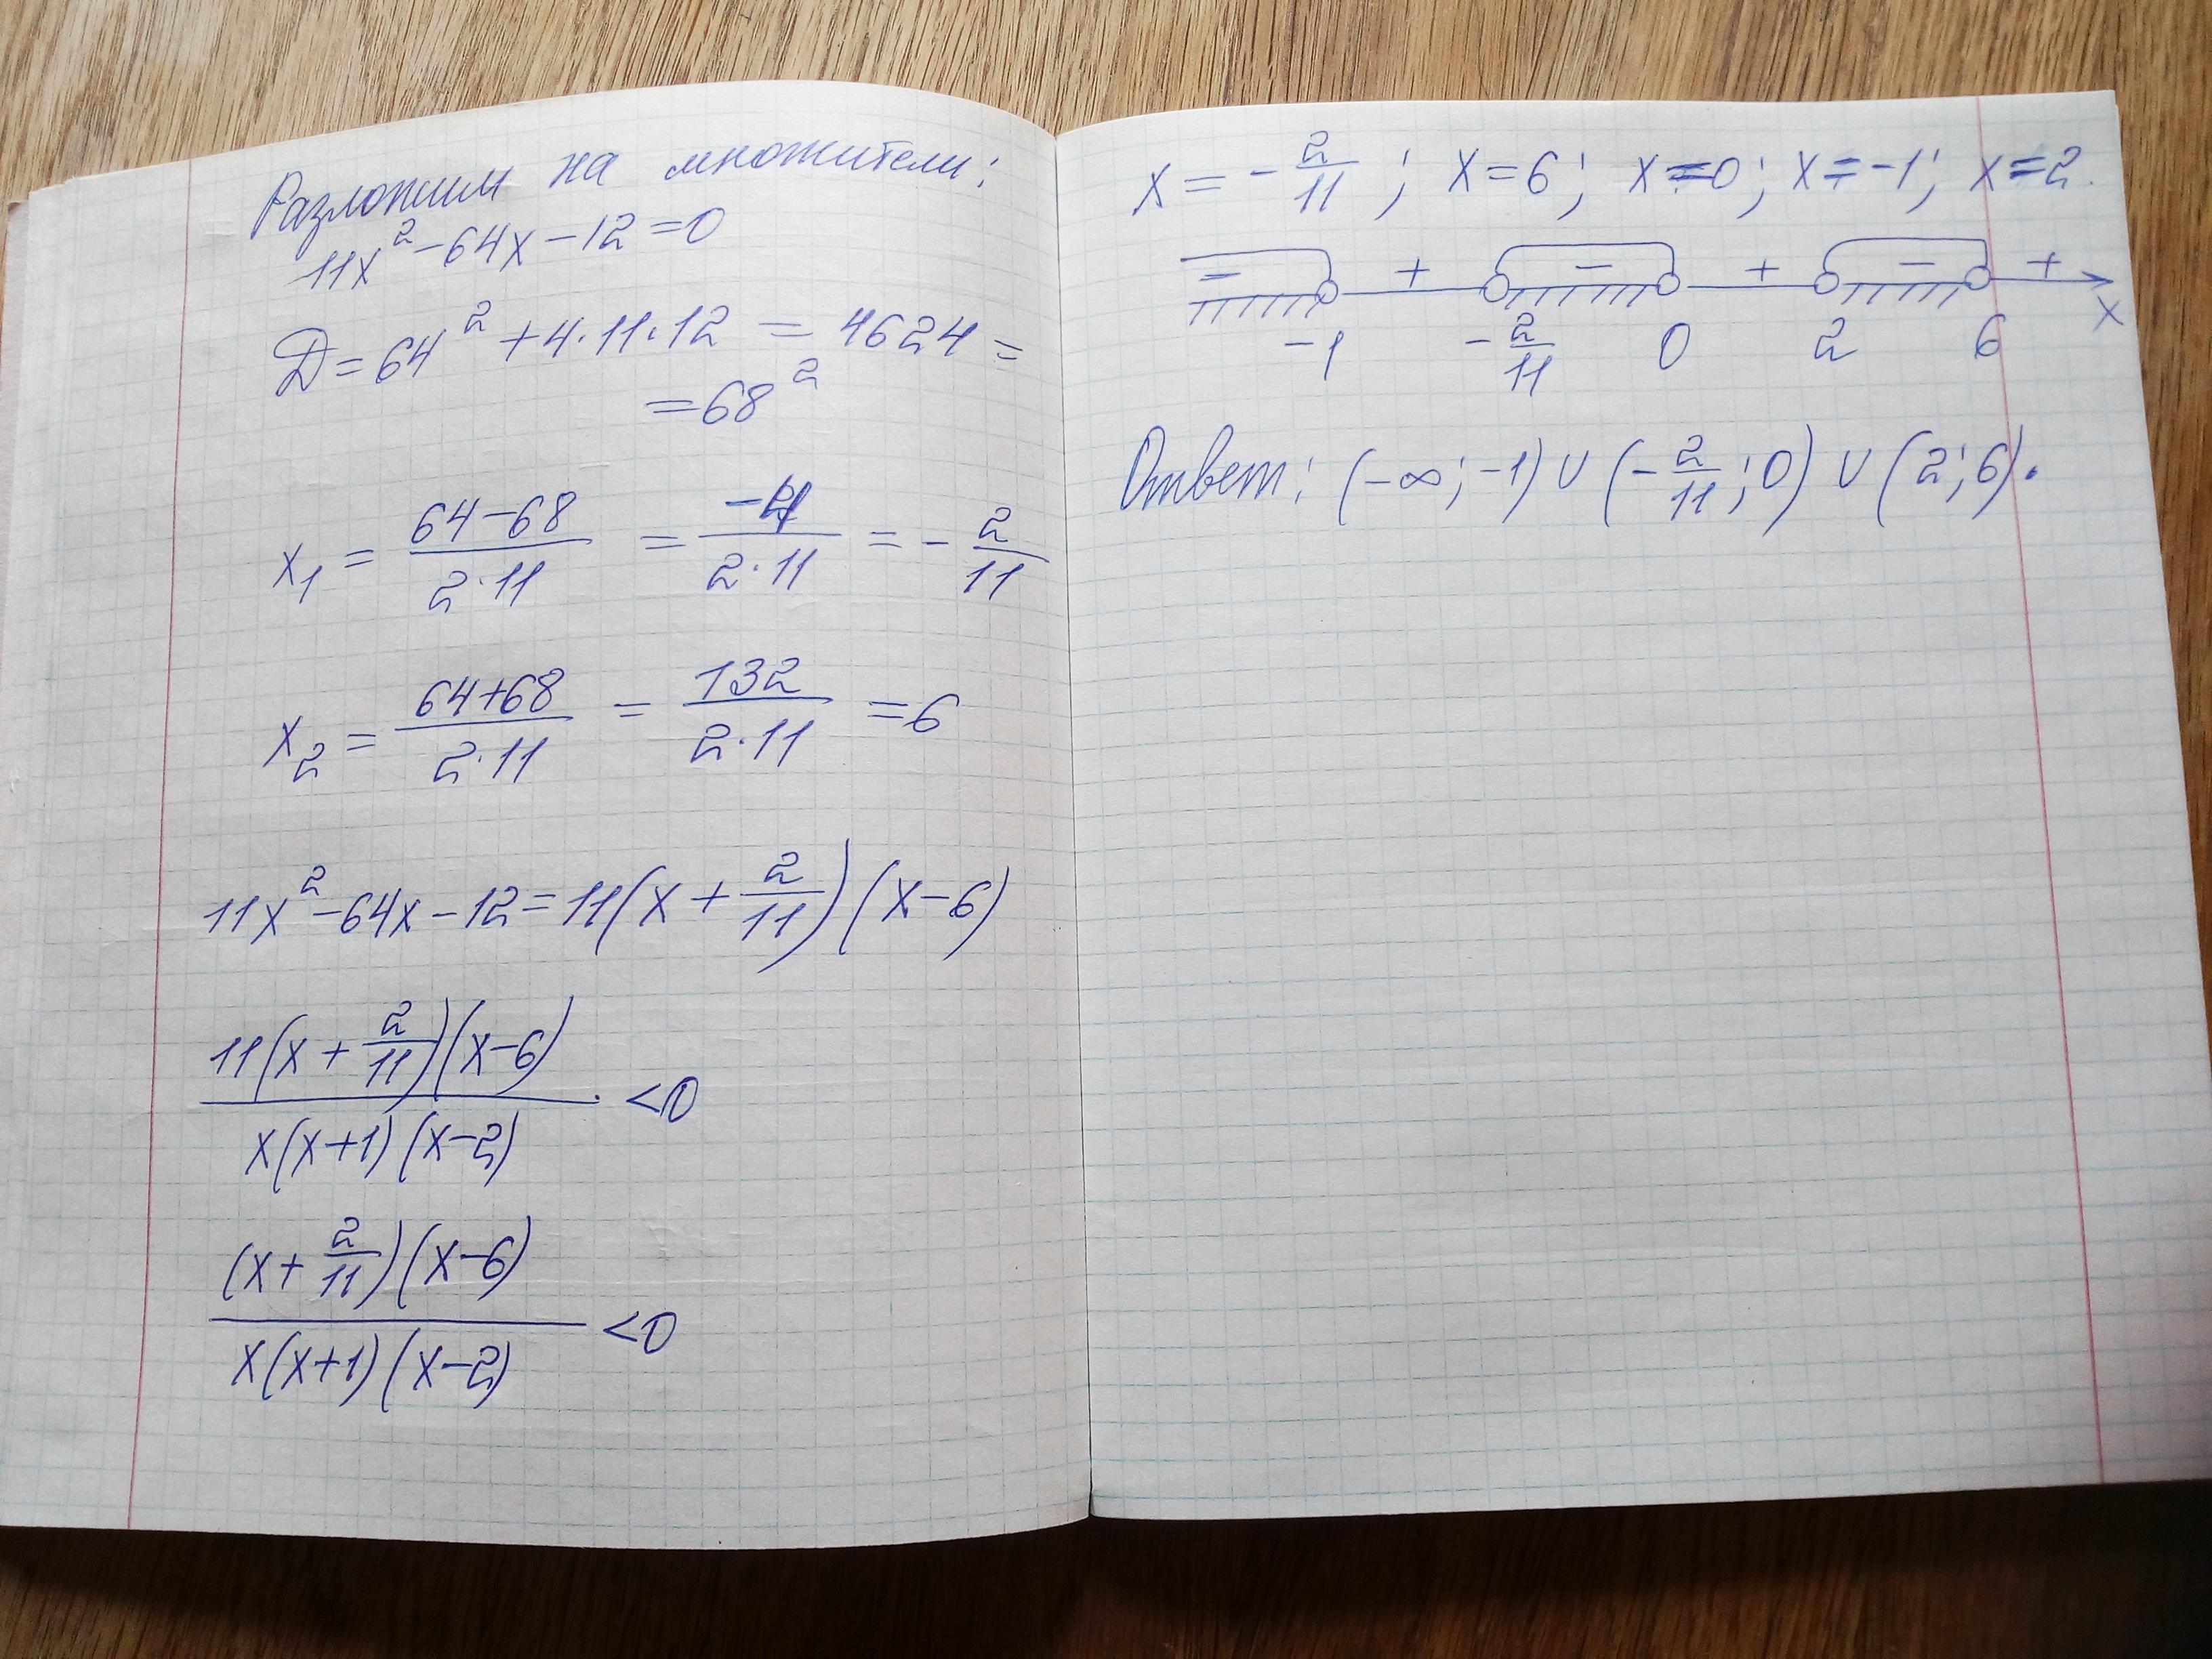 Разложим на множители:
11x² - 64x - 12 = 0
Д = 64² + 4·11·12 = 4624 =
= 68²
x₁ = (64-68)/(2·11) = -4/(2·11) = -2/11
x₂ = (64+68)/(2·11) = 132/(2·11) = 6
11x² - 64x - 12 = 11(x + 2/11)(x-6)
11(x + 2/11)(x-6)
x(x+1)(x-2)
<0
(x + 2/11)(x-6)
x(x+1)(x-2)
<0
x = -2/11; x=6; x=0; x=-1; x=2.
- + - + - +
-1 -2/11 0 2 6 x
Ответ: (-∞; -1) ∪ (-2/11; 0) ∪ (2; 6).